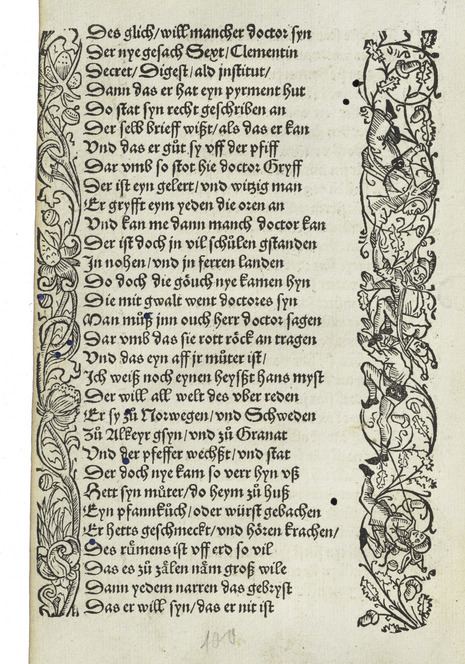 Des glich/ will mancher doctor syn
Der nye gesach Sext/ Clementin
Decret/ Digest/ ald jnstitut/
Dann das er hat eyn pyrment hut
Do stat syn recht geschriben an
Der selb brieff wißt/ als das er kan
Vnd das er gůt sy vff der pfiff
Dar vmb so stot hie doctor Gryff
Der ist eyn gelert/ vnd witzig man
Er gryfft eym yeden die oren an
Vnd kan me dann manch doctor kan
Der ist doch jn vil schůlen gstanden
Jn nohen/ vnd jn ferren landen
Do doch die göuch nye kamen hyn
Die mit gwalt went doctores syn
Man můß jnn ouch herr doctor sagen
Dar vmb das sie rott röck an tragen
Vnd das eyn aff jr můter ist/
Jch weiß noch eynen heyßßt hans myst
Der will all welt des vber reden
Er sy zů Norwegen/ vnd Schweden
Zů Alkeyr gsyn/ vnd zů Granat
Vnd der pfeffer wechßt/ vnd stat
Der doch nye kam so verr hyn vß
Hett syn můter/ do heym zů huß
Eyn pfannkůch/ oder würst gebachen
Er hetts geschmeckt/ vnd hören krachen/
Des růmens ist vff erd so vil
Das es zů zålen nåm groß wile
Dann yedem narren das gebryst
Das er will syn/ das er nit ist